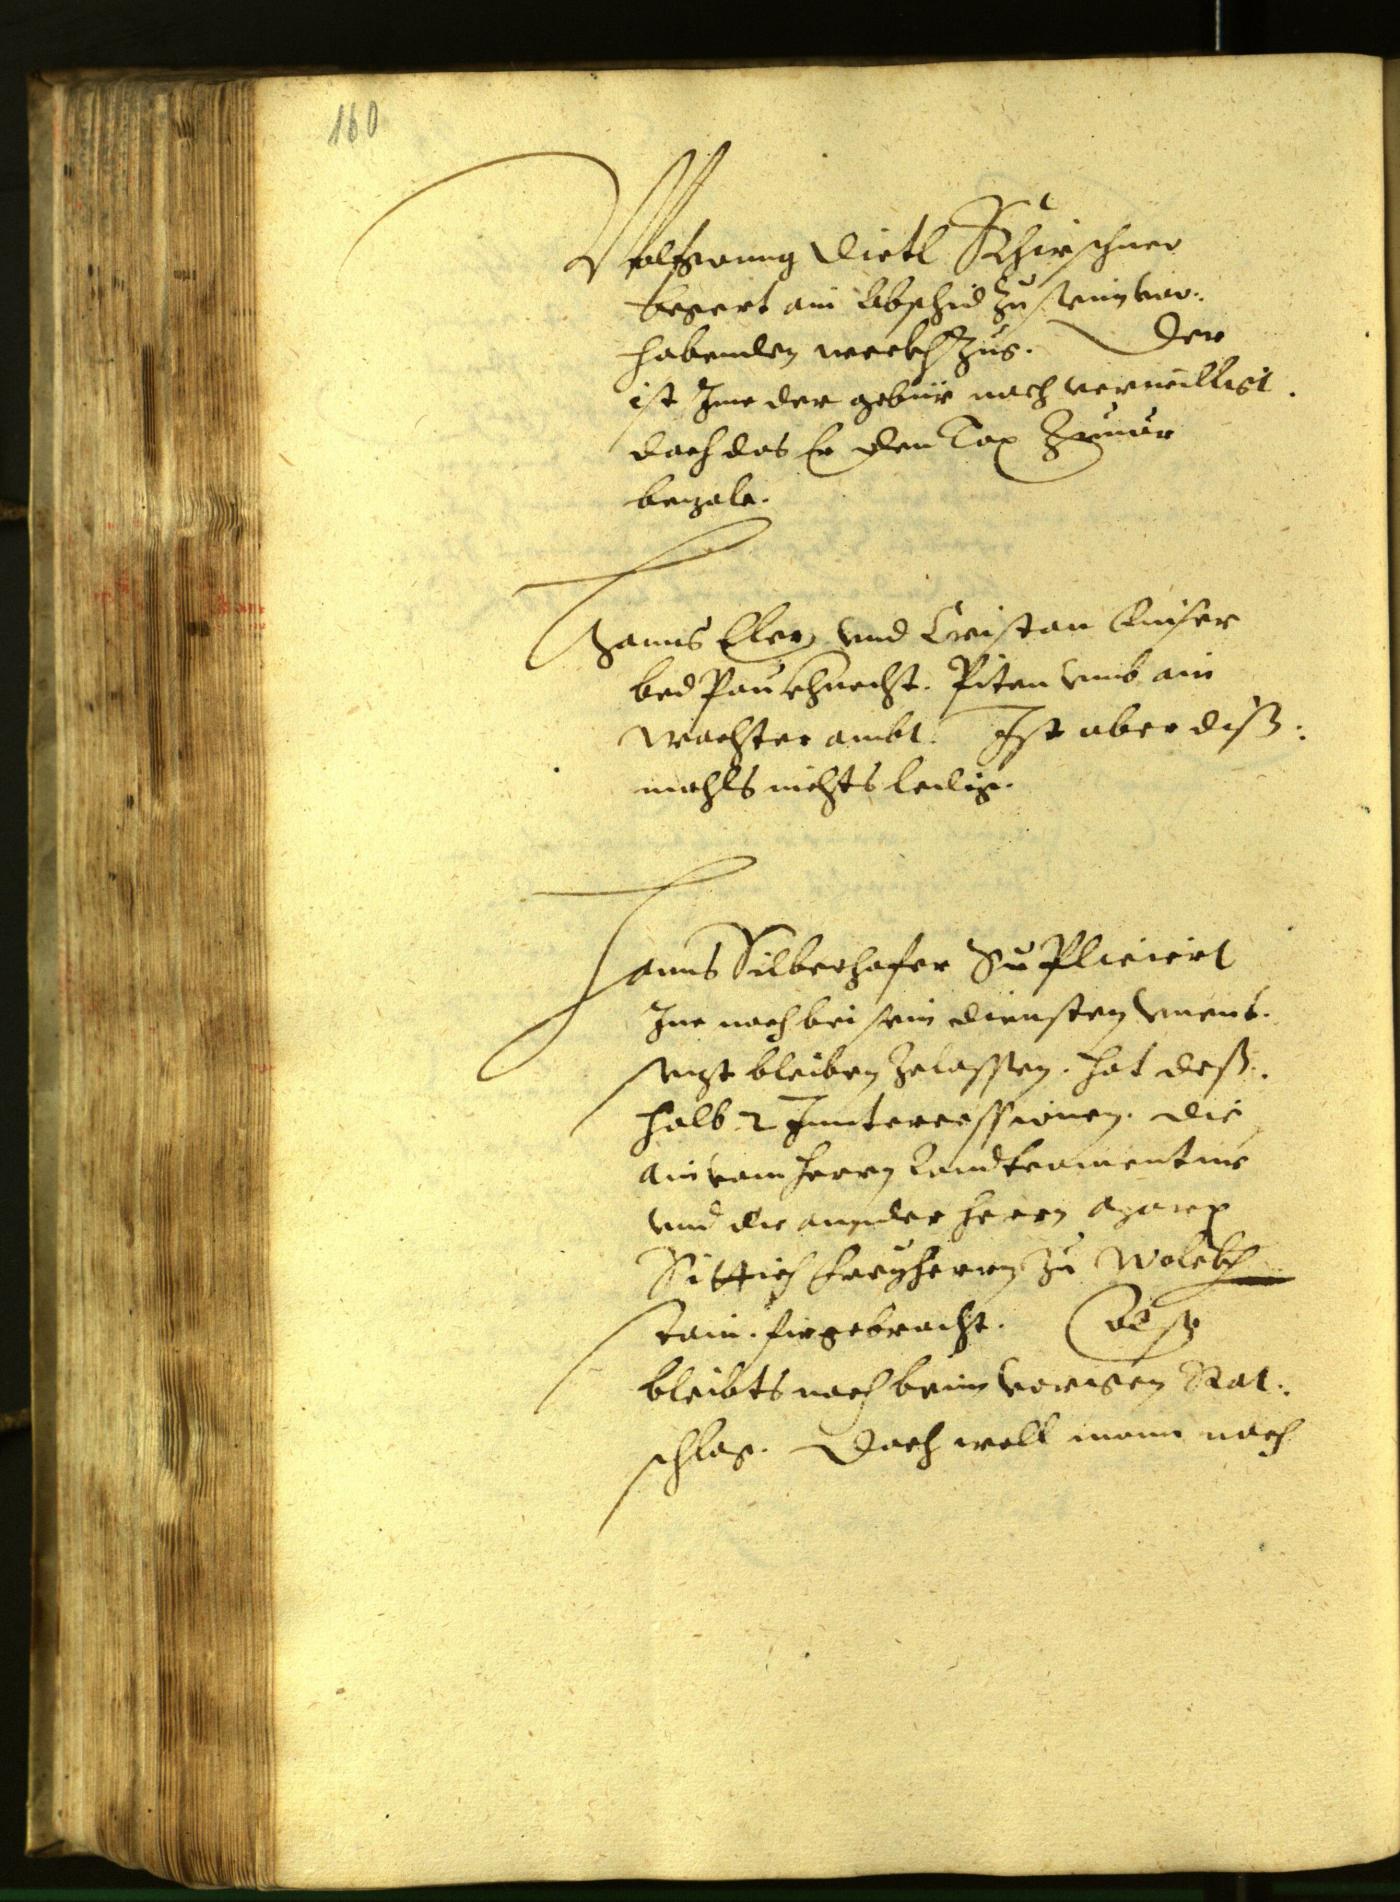 160
Wolfganng Dietl Khirschner
begert ain Abschid zu seim vor-
habenden weckhzug. Der
ist Ime der gebür nach verwilligt.
doch das Er den Tax zuuor
bezale.
Hanns Eler vnd Cristan Kaiser
bed Paukhnecht. Piten vmb ain
Wachter ambt. Ist aber diß-
mahls nichts ledig.
Hanns Silberhafer Supliciert
Ine noch bei sein diensten vnent-
sezt bleiben zelassen. hat deß-
halb 2 Inntercessionen. die
ain vom herrn Landtcomentur
vnd die annder herrn Marx
Sittich freyherrn zu Wolckh
stain. firgebracht.
bleibts noch beim vorigen Rat-
schlag. Doch well mann noch